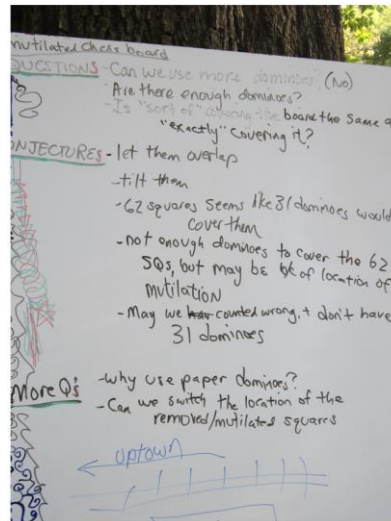 mutilated chess board
QUESTIONS - Can we use more dominoes? (No)
- Are there enough dominoes?
- Is "sort of" covering the board the same a
"exactly" covering it?
ONJECTURES - let them overlap
- tilt them
- 62 squares seems like 31 dominoes would
cover them
- not enough dominoes to cover the 62
SQs, but may be of location of
mutilation
- May we counted wrong, + don't have
31 dominoes
More Q's - why use paper dominoes?
- Can we switch the location of the
removed/mutilated squares
uptown